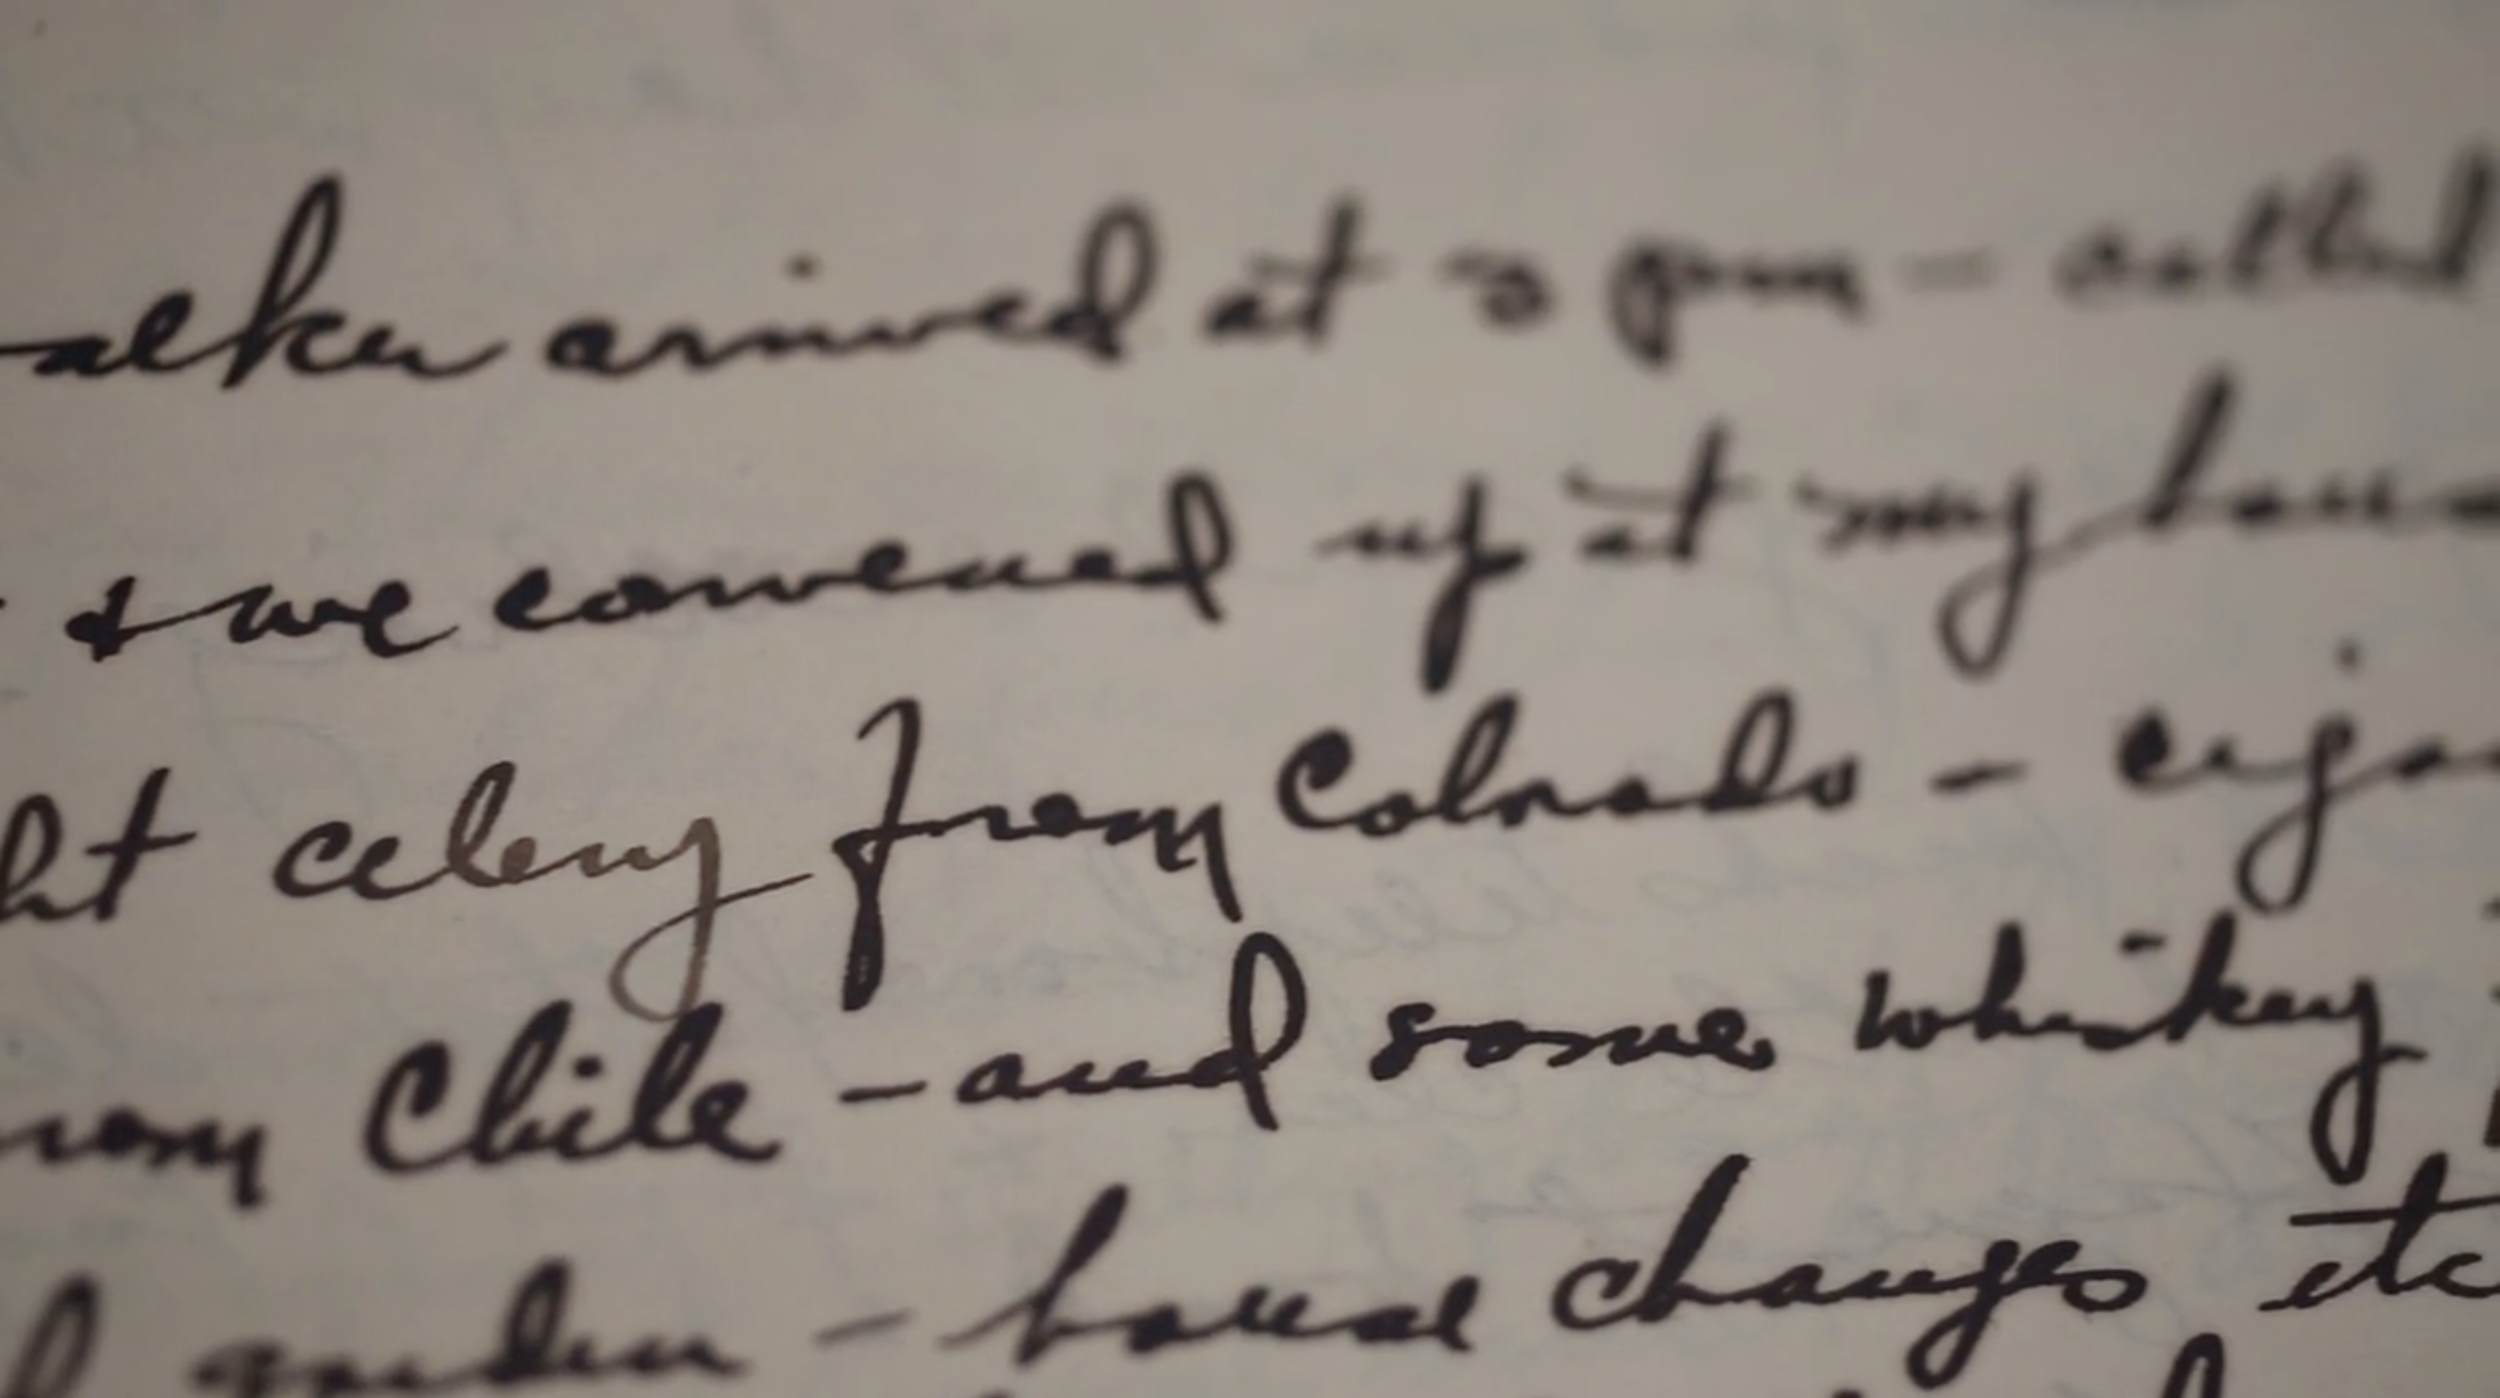 alker arrived at 5 pm - called
& we convened up at my hous
ht celery from Colorado - cigar
rom Chile - and some whiskey
garden - house changes etc